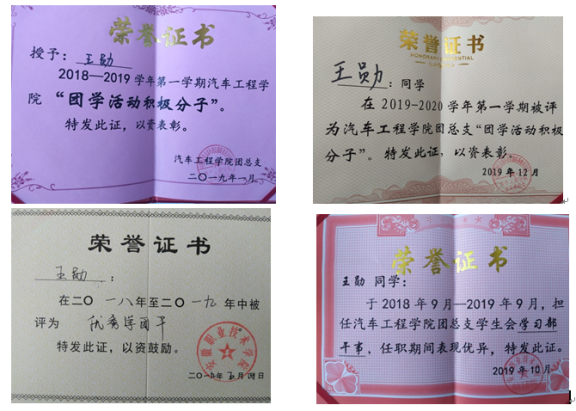 荣誉证书
授予：王勋
2018—2019学年第一学期汽车工程学
院“团学活动积极分子”。
特发此证，以资表彰。
汽车工程学院团总支
二〇一九年一月
荣誉证书
王勋：同学
在2019-2020学年第一学期被评
为汽车工程学院团总支“团学活动积极
分子”。特发此证，以资表彰。
2019年12月
荣誉证书
王勋：
在二〇一八年至二〇一九年中被
评为 优秀学团干
特发此证，以资鼓励。
安徽职业技术学院
荣誉证书
王勋 同学：
于2018年9月—2019年9月，担
任汽车工程学院团总支学生会学习部
干事，任职期间表现优异，特发此证。
2019年10月